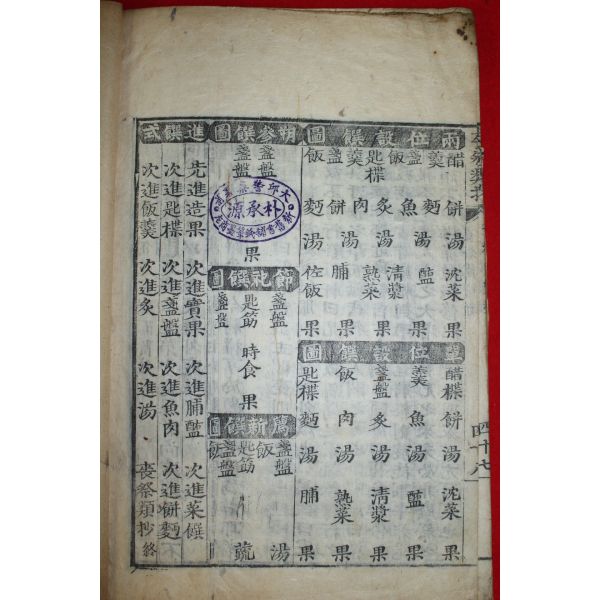 兩位設饌圖
醋 羹 盞盤 飯 匙楪 羹 盞盤 飯
餠 麵 魚 炙 肉 餠 麵
湯 湯 湯 湯 湯
沈菜 醢 淸漿 熟菜 脯 佐飯
果 果 果 果 果 果
單位設饌圖
醋楪 羹 盞盤 飯 匙楪
餠 魚 炙 肉 麵
湯 湯 湯 湯 湯
沈菜 醢 淸漿 熟菜 脯
果 果 果 果 果
朔參饌圖
盞盤 盞盤
果
節祀饌圖
盞盤 匙筯 盞盤
時食
果
薦新饌圖
盞盤 飯 匙筯 盞盤 飯
湯 蔬
進饌式
先進造果 次進實果 次進脯醢 次進菜饌
次進匙楪 次進盞盤 次進魚肉 次進餠麵
次進飯羹 次進炙 次進湯 喪祭類抄終
朴承源
四十八